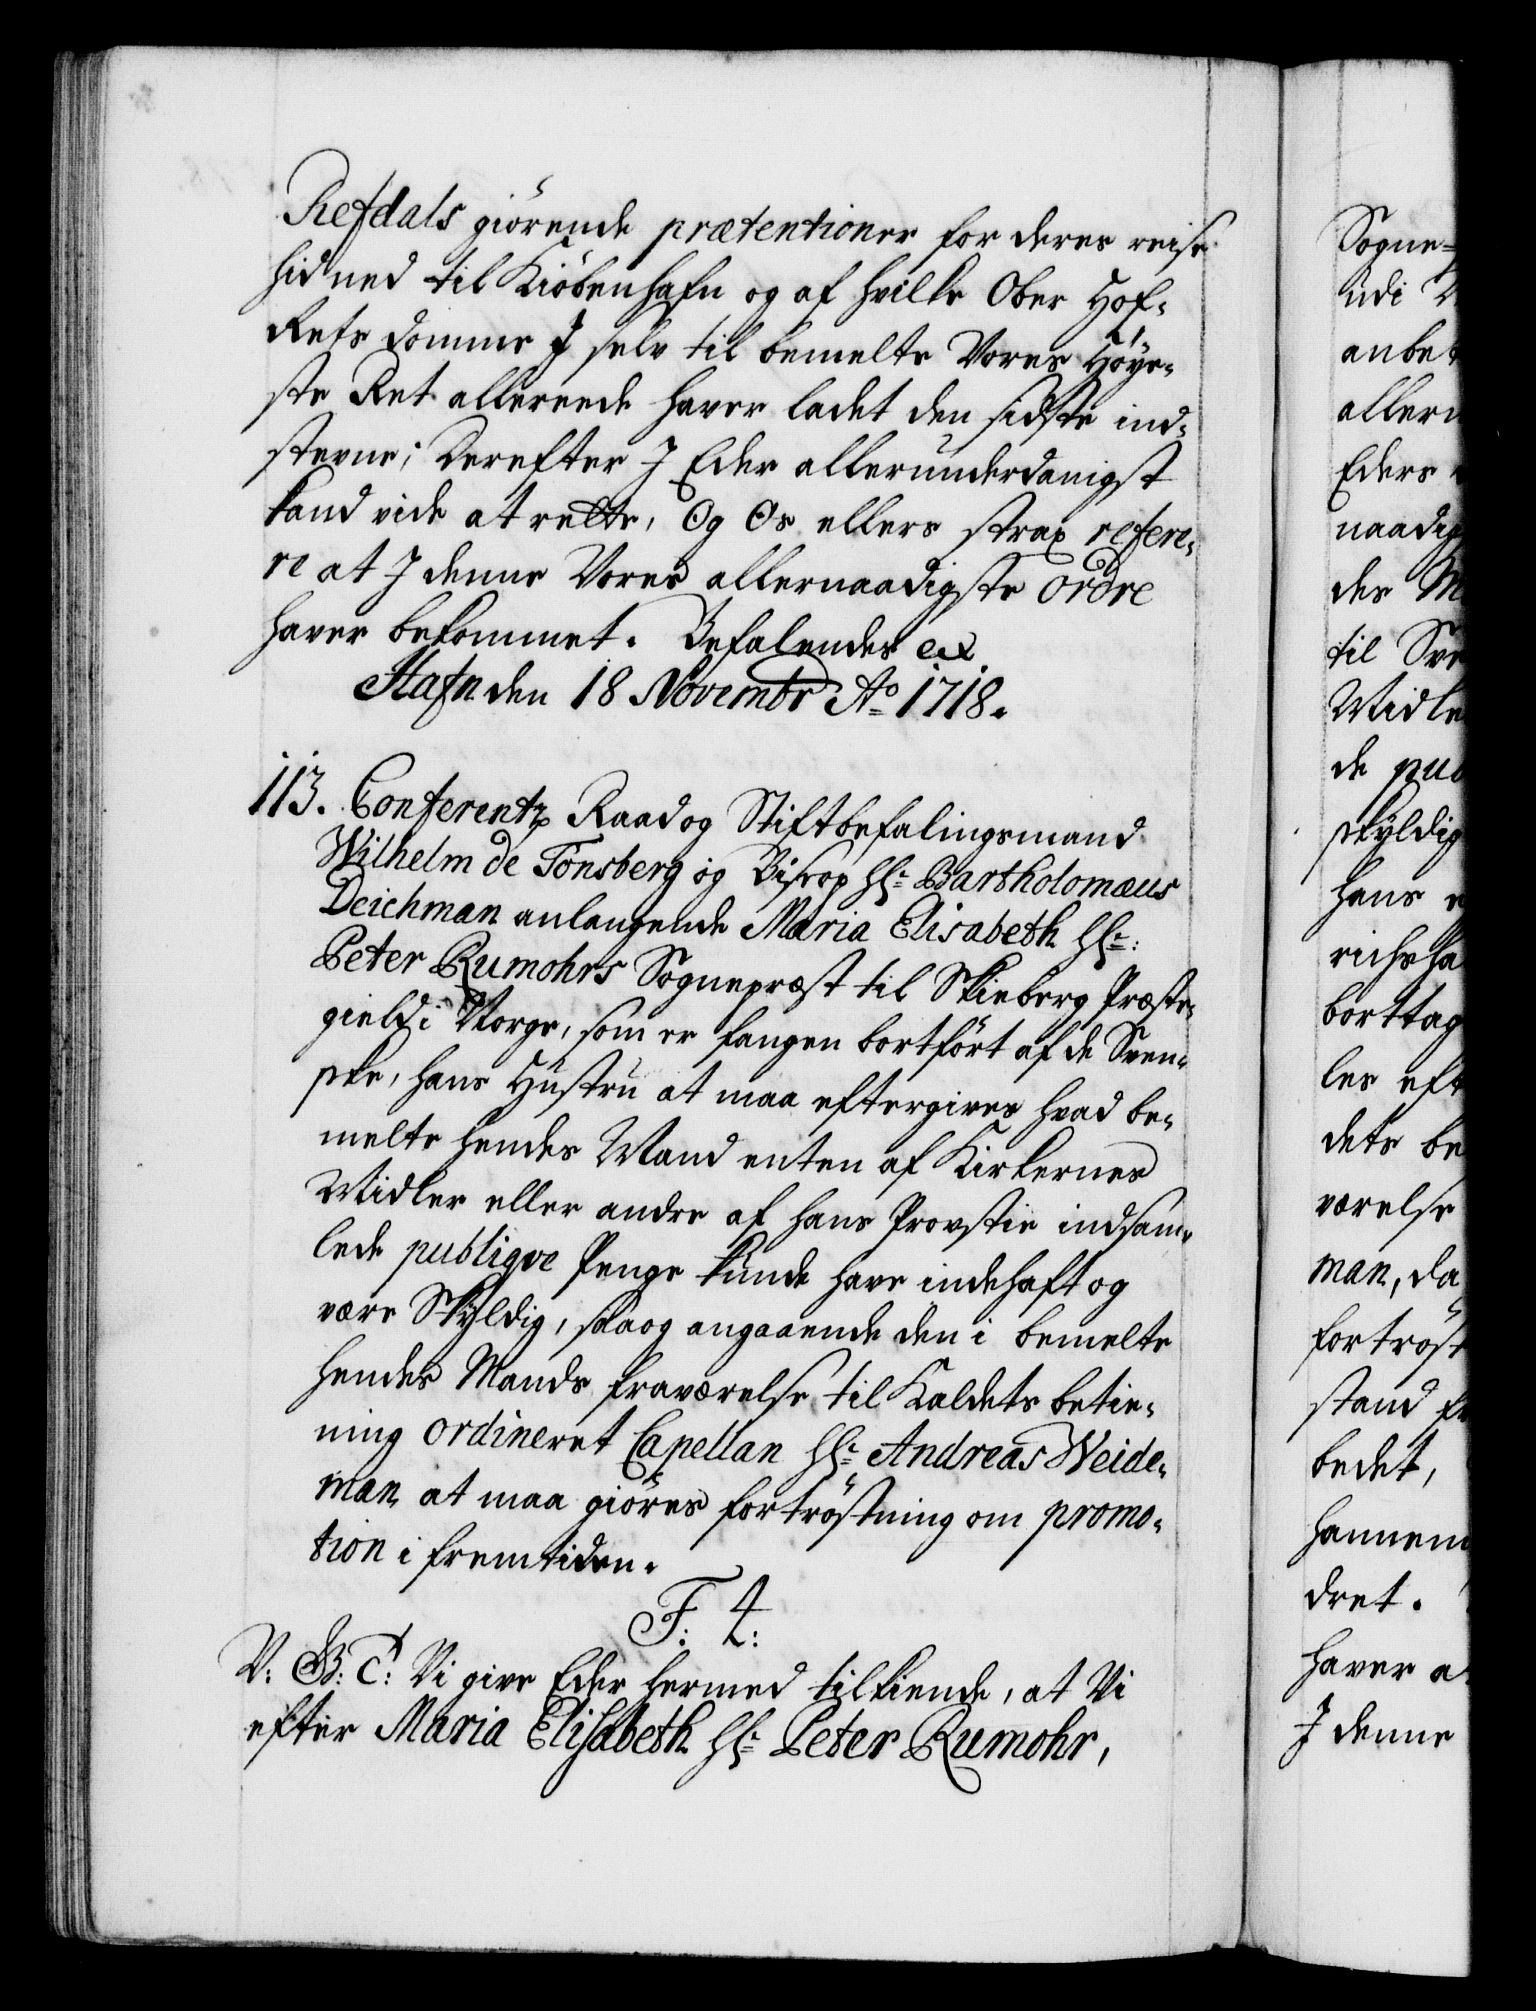 Refdals giörende prætentioner for deres reise
hid ned til Kiöbenhafn og af hvilke Ober Hof-
Rets domme J selv til bemelte Vores Höye-
ste Ret allereede haver ladet den sidste ind-
stevne; Derefter J Eder allerunderdanigst
kand vide at rette, Og Os ellers strax refere-
re at J denne Vores allernaadigste ordre
haver bekommet. Befalendes etc
Hafn den 18 Novembr Ao 1718.
113. Conferentz Raad og Stiftbefalingsmand
Wilhelm de Tönsberg og Biscop Hr. Bartholomæus
Deichman anlangende Maria Elisabeth Hr:
Peter Rumohrs Sognepræst til Skieberg Præste-
gield i Norge, som er fangen bortfört af de Sven-
ske, hans Hustru at maa eftergives hvad be-
melte hendes Mand enten af Kirkernes
Midler eller andre af hans Provstie indsam-
lede publiqve Penge kunde have indehaft og
være Skyldig, saa og angaaende den i bemelte
hendes Mands fraværelse til Kaldets betie-
ning ordineret Capellan Hr. Andreas Weide-
man at maa giöres fortröstning om promo-
tion i fremtiden.
F. 4:
V: G: C: Vi give Eder hermed tilkiende, at Vi
efter Maria Elisabeth Hr. Peter Rumohr,
Sogne-
udi
anbe
allern
Eders
naadig
des
til Sve
Midle
de pub
skyldig
hans
richsha
borttag
les eft
dets be
værelse
man, da
fortröst
stand
bedet,
hannem
dret.
haver a
J denne